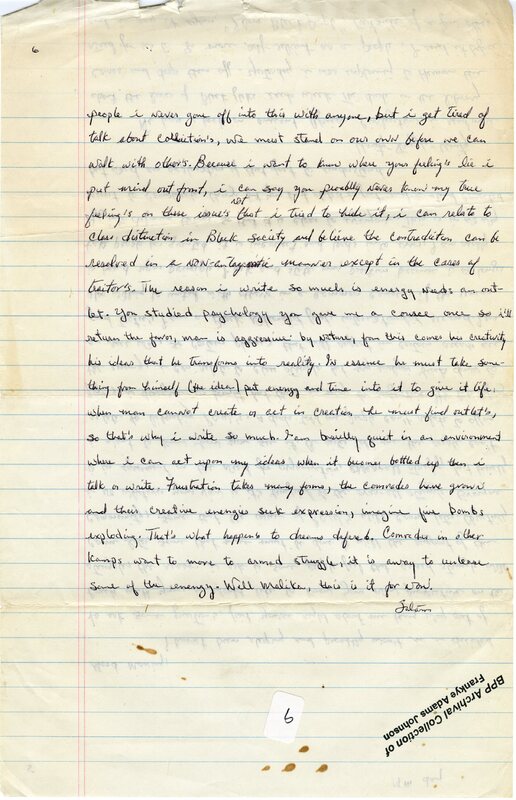 6
people i never gone off into this with anyone, but i get tired of
talk about coalition's, we must stand on our own before we can
walk with other's. Because i want to know where your feeling's lie i
put mind out front, i can say you proably never know my true
feeling's on these issue's not that i tried to hide it, i can relate to
class distinction in Black society and believe the contradiction can be
resolved in a non-antagonistic manner except in the cases of
traitor's. The reason i write so much is energy needs an out-
let. You studied psychology you give me a course once so i'll
return the favor, man is aggressive by nature, from this comes his creativity
his ideas that he transforms into reality. In essence he must take some-
thing from himself (the idea) put energy and time into it to give it life.
when man cannot create or act in creation he must find outlet's,
so that's why i write so much. I am basically quiet in an environment
where i can act upon my ideas when it becomes bottled up then i
talk or write. Frustration takes many forms, the comrades have grown
and their creative energies seek expression, imagine five bombs
exploding. That's what happens to dreams defered. Comrades in other
kamps want to move to armed struggle, it is away to unlease
some of the energy. Well Malika, this is it for now.
Salam
BPP Archival Collection of
Frankye Adams Johnson
6